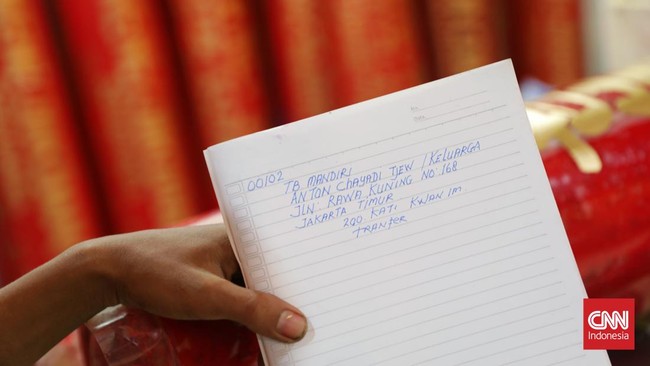 No.
Date
00102 TB MANDIRI
ANTON CHAYADI TJEW / KELUARGA
JLN. RAWA KUNING NO 168
JAKARTA TIMUR
200 KATI KWAN IM
TRANFER
CNN
Indonesia